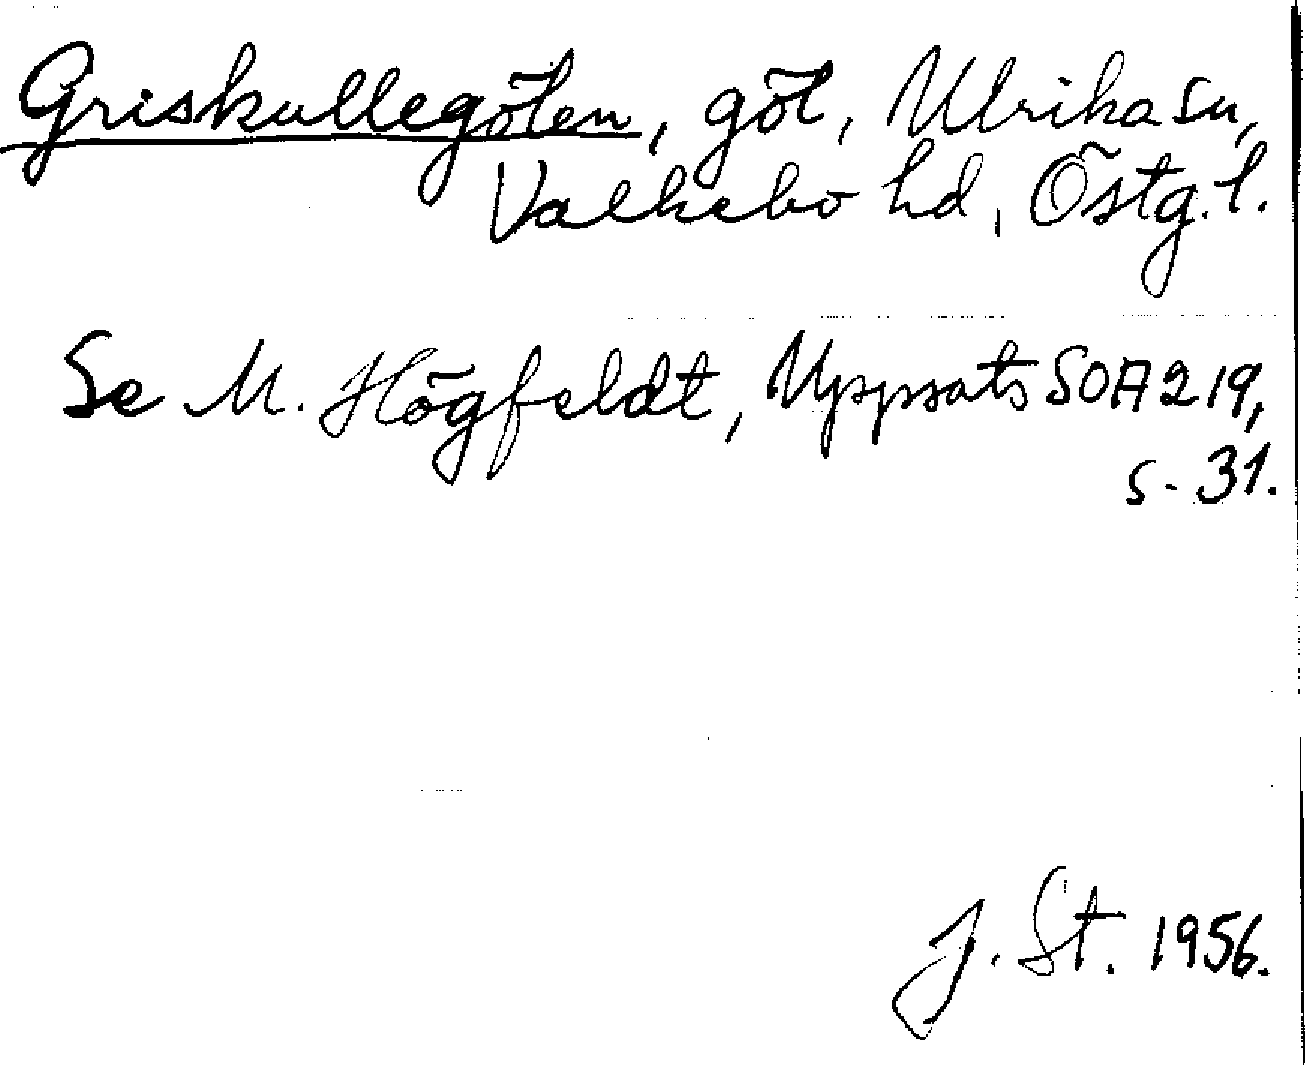 Griskullegölen, göl, Ulrika sn,
Valkebo hd, Östg. l.
Se M. Högfeldt, Uppsats SOA 219,
s. 31.
J. St. 1956.